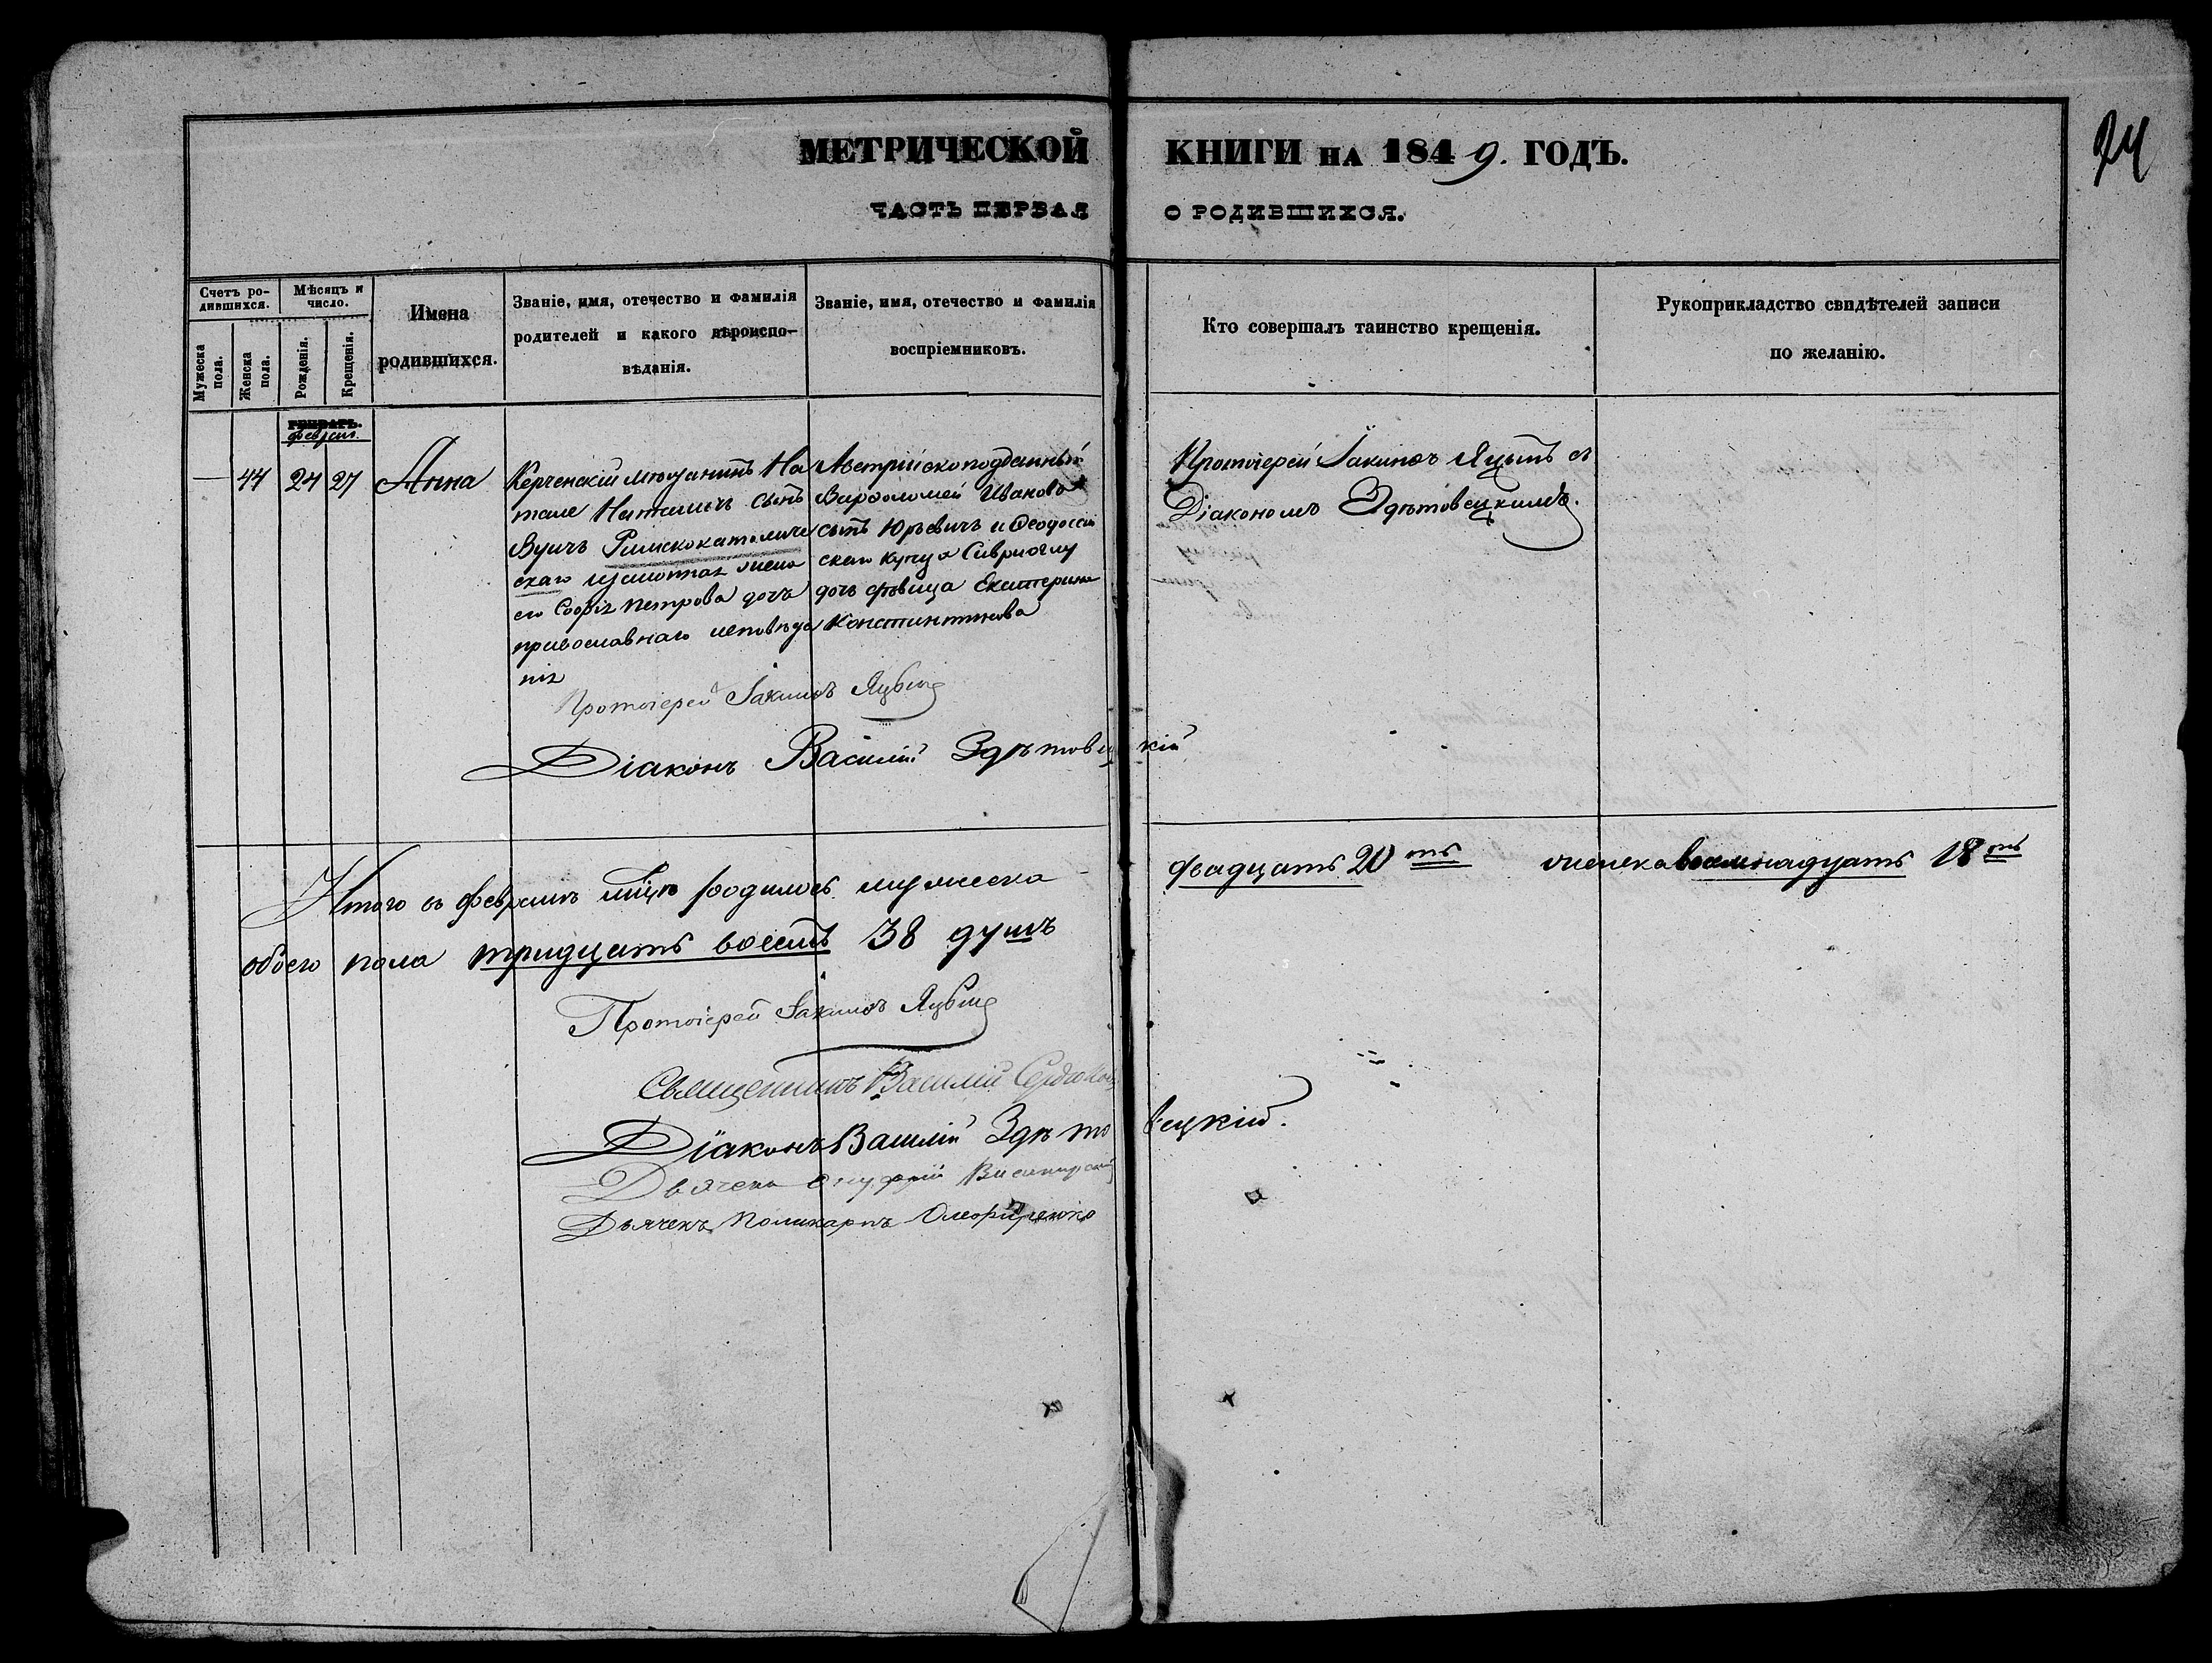 МЕТРИЧЕСКОЙ КНИГИ НА 1849. ГОДЪ.
24
ЧАСТЬ ПЕРВАЯ О РОДИВШИХСЯ.
Счетъ ро-
дившихся.
Мужеска пола.
Женска пола.
Мѣсяцъ и
число.
Рожденія.
Крещенія.
Имена
родившихся.
Званіе, имя, отечество и фамилія
родителей и какого вѣроиспо-
вѣданія.
Званіе, имя, отечество и фамилія
воспріемниковъ.
Кто совершалъ таинство крещенія.
Рукоприкладство свидѣтелей записи
по желанію.
ГЕНВАРЬ.
февраль.
— 44 24 27 Анна
Керченскій мѣщанинъ На
тале Наталичъ сынъ
Вуичъ Римскокатоличе
скаго и жена
его Софія Петрова дочь
православнаго исповѣда
нія
Австрійскоподданный
Варфоломей Ивановъ
сынъ Юрьевичъ и Ѳеодосій
скаго купца
дочь дѣвица Екатерина
Константинова
Протоіерей Іакимъ съ
Діакономъ Здѣтовецкимъ.
Протоіерей Іакимъ
Діаконъ Василій Здѣтовецкій
Итого въ февралѣ мцѣ родилось мужеска двадцать 20 ть женска восемнадцать 18 ть
обоего пола тридцать восемь 38 душъ
Протоіерей Іакимъ
Священникъ Василій
Діаконъ Василій Здѣтовецкій.
Дьячекъ Онуфрій
Дьячекъ Поликарпъ